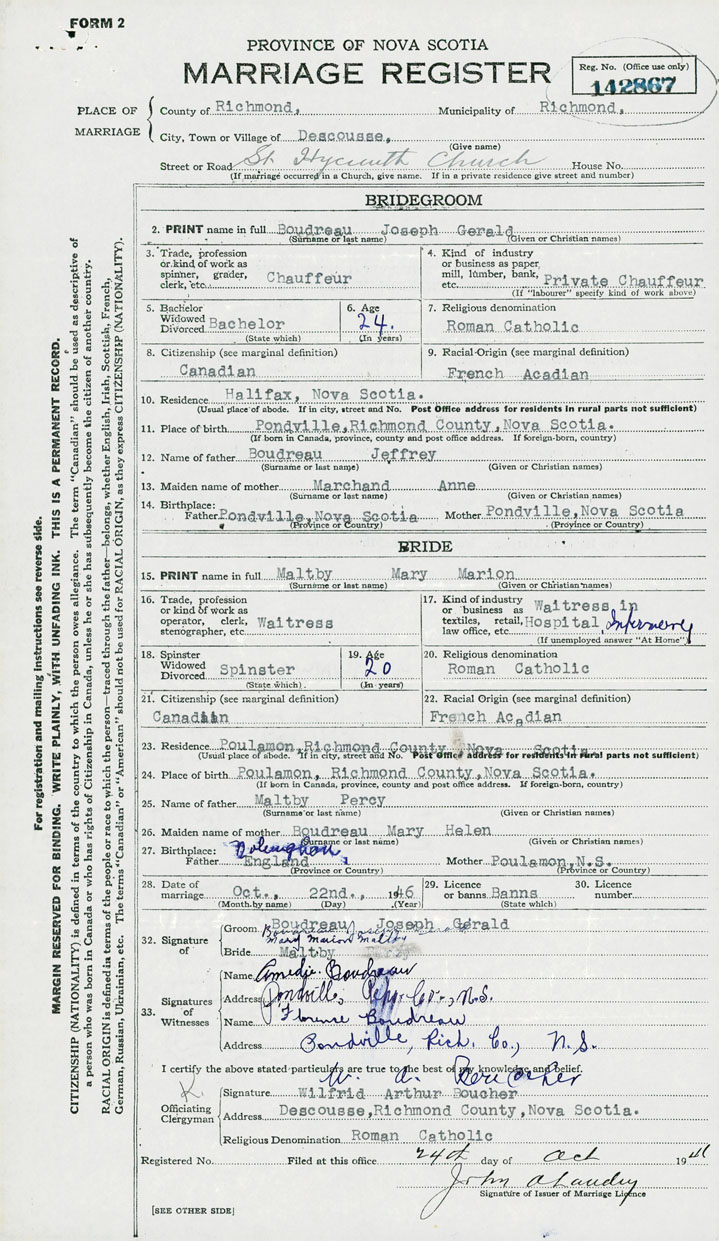 FORM 2
PROVINCE OF NOVA SCOTIA
MARRIAGE REGISTER
Reg. No. (Office use only)
142867
PLACE OF MARRIAGE
County of Richmond, Municipality of Richmond,
City, Town or Village of Descousse,
(Give name)
Street or Road St. Hycinth Church House No.
(If marriage occurred in a Church, give name. If in a private residence give street and number)
BRIDEGROOM
2. PRINT name in full Boudreau Joseph Gerald
(Surname or last name) (Given or Christian names)
3. Trade, profession or kind of work as spinner, grader, clerk, etc. Chauffeur
4. Kind of industry or business as paper mill, lumber, bank, etc. Private Chauffeur
(If "labourer" specify kind of work above)
5. Bachelor Widowed Divorced Bachelor
(State which)
6. Age 24.
(In years)
7. Religious denomination
Roman Catholic
8. Citizenship (see marginal definition)
Canadian
9. Racial-Origin (see marginal definition)
French Acadian
10. Residence Halifax, Nova Scotia.
(Usual place of abode. If in city, street and No. Post Office address for residents in rural parts not sufficient)
11. Place of birth Pondville,Richmond County,Nova Scotia.
(If born in Canada, province, county and post office address. If foreign-born, country)
12. Name of father Boudreau Jeffrey
(Surname or last name) (Given or Christian names)
13. Maiden name of mother Marchand Anne
(Surname or last name) (Given or Christian names)
14. Birthplace:
Father Pondville,Nova Scotia Mother Pondville,Nova Scotia
(Province or Country) (Province or Country)
BRIDE
15. PRINT name in full Maltby Mary Marion
(Surname or last name) (Given or Christian names)
16. Trade, profession or kind of work as operator, clerk, stenographer, etc. Waitress
17. Kind of industry or business as textiles, retail, law office, etc. Waitress in Hospital
(If unemployed answer "At Home")
18. Spinster Widowed Divorced Spinster
(State which)
19. Age 20
(In years)
20. Religious denomination
Roman Catholic
21. Citizenship (see marginal definition)
Canadian
22. Racial Origin (see marginal definition)
French Acadian
23. Residence Poulamon,Richmond County Nova Scotia
(Usual place of abode. If in city, street and No. Post Office address for residents in rural parts not sufficient)
24. Place of birth Poulamon, Richmond County,Nova Scotia.
(If born in Canada, province, county and post office address. If foreign-born, country)
25. Name of father Maltby Percy
(Surname or last name) (Given or Christian names)
26. Maiden name of mother Boudreau Mary Helen
(Surname or last name) (Given or Christian names)
27. Birthplace:
Father England Mother Poulamon,N.S.
(Province or Country) (Province or Country)
28. Date of marriage Oct., 22nd., 1946
(Month by name) (Day) (Year)
29. Licence or banns Banns
(State which)
30. Licence number
32. Signature of
Groom Boudreau Joseph Gerald
Mary Marion Maltby
Bride Maltby
33. Signatures of Witnesses
Name Amedie Boudreau
Address Pondville, Co., N.S.
Name Florence Boudreau
Address Pondville, Rich. Co., N.S.
I certify the above stated particulars are true to the best of my knowledge and belief.
W. A. Boucher
Officiating Clergyman
Signature Wilfrid Arthur Boucher
Address Descousse,Richmond County,Nova Scotia.
Religious Denomination Roman Catholic
Registered No. Filed at this office 24th day of Oct 19
John A Landry
Signature of Issuer of Marriage Licence
[SEE OTHER SIDE]
For registration and mailing instructions see reverse side.
MARGIN RESERVED FOR BINDING. WRITE PLAINLY, WITH UNFADING INK. THIS IS A PERMANENT RECORD.
CITIZENSHIP (NATIONALITY) is defined in terms of the country to which the person owes allegiance. The term "Canadian" should be used as descriptive of
a person who was born in Canada or who has rights of Citizenship in Canada, unless he or she has subsequently become the citizen of another country.
RACIAL ORIGIN is defined in terms of the people or race to which the person—traced through the father—belongs, whether English, Irish, Scottish, French,
German, Russian, Ukrainian, etc. The terms "Canadian" or "American" should not be used for RACIAL ORIGIN, as they express CITIZENSHIP (NATIONALITY).